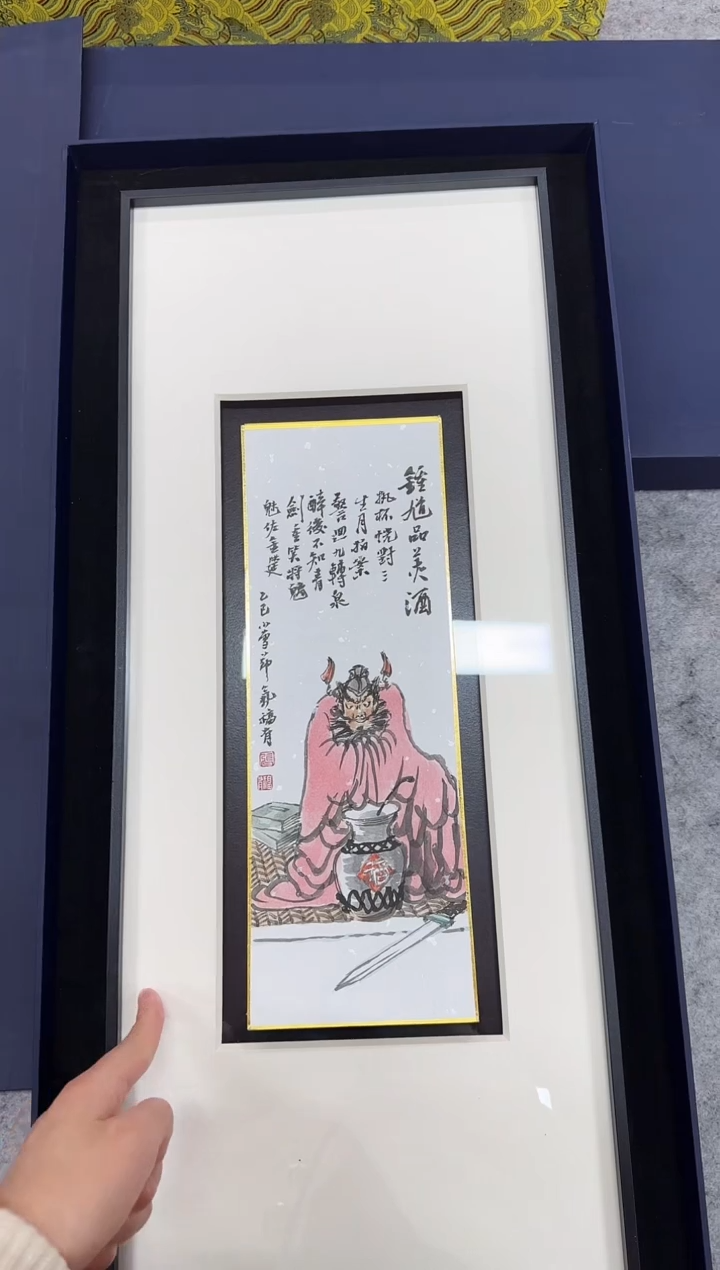 鍾馗品美酒
執杯恍對三
生月拍案
驚迴九轉泉
醉後不知青
劍重笑將魑
魅佐金樽
乙巳小雪節